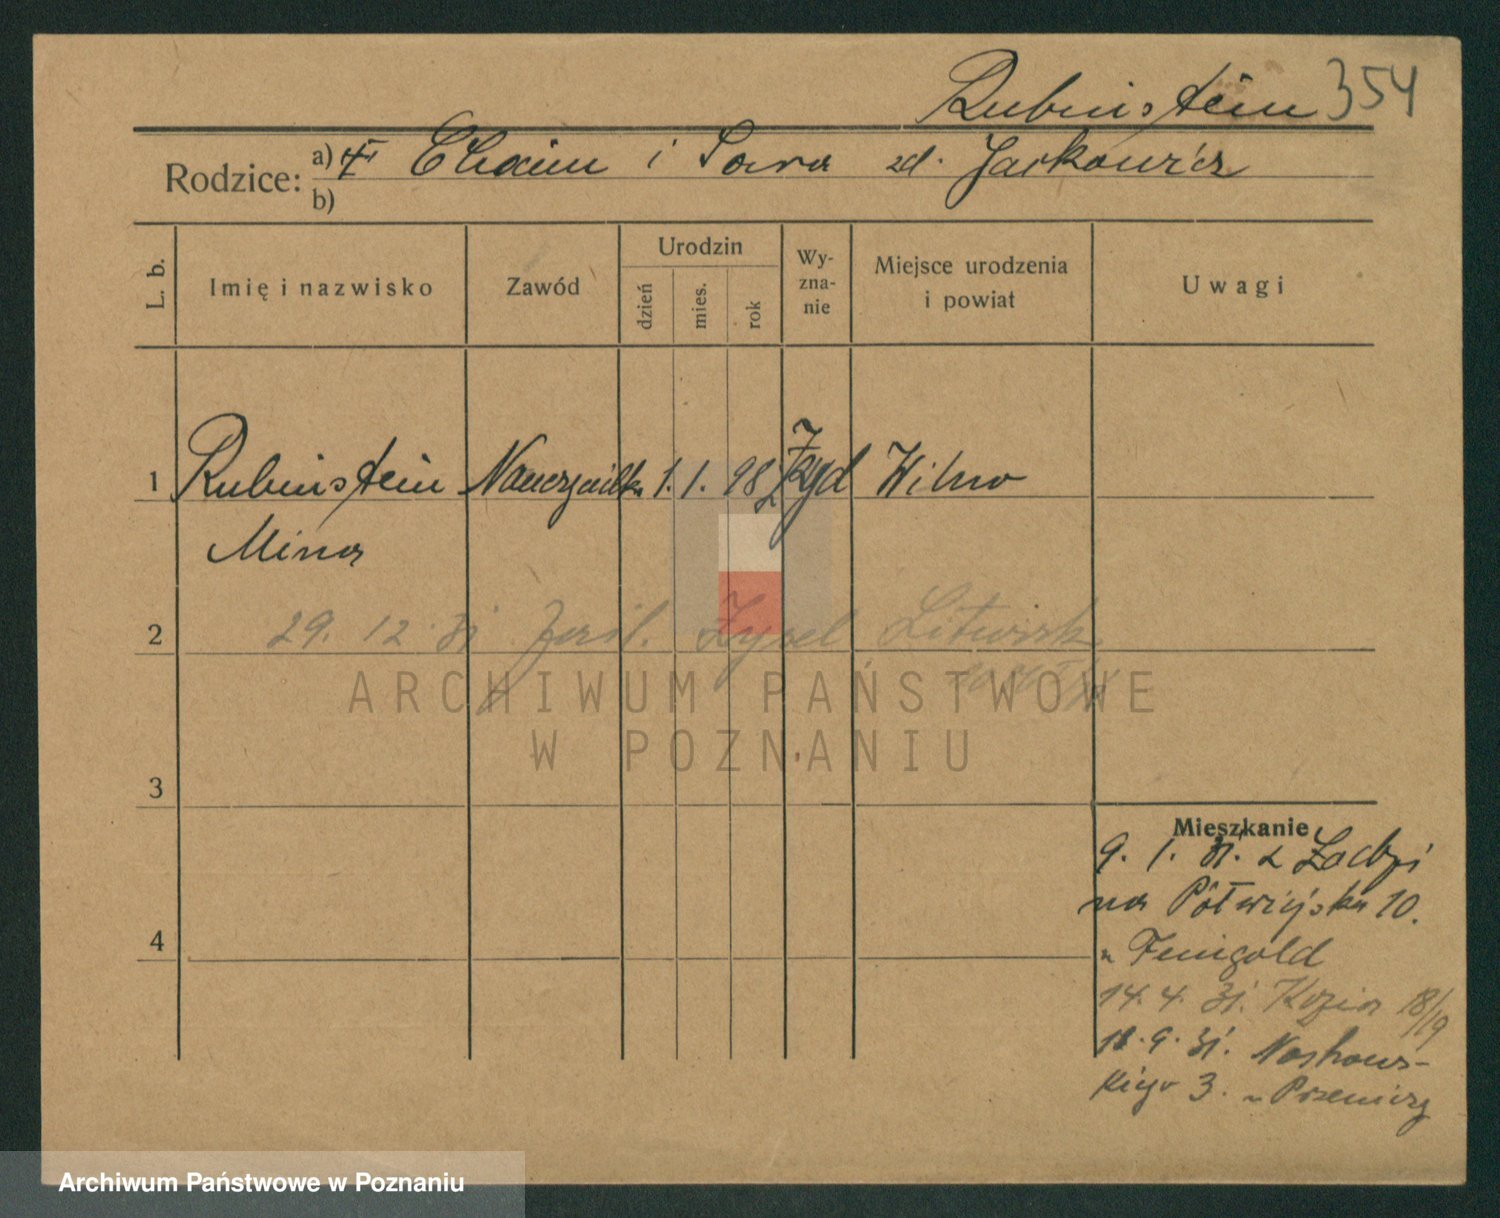 Rubinstein 354
Rodzice: a) Chaim i Sara zd. Jackowicz
b)
L. b.
Imię i nazwisko
Zawód
Urodzin
dzień
mies.
rok
Wy-
zna-
nie
Miejsce urodzenia
i powiat
Uwagi
1 Rubinstein Nauczycielka 1. 1. 98 Żyd Wilno
Mina
2 29. 12. 31 Żyzel Litewsk
ARCHIWUM PAŃSTWOWE
W POZNANIU
3
4
Mieszkanie
9. 1. 31. z Łodzi
na Półwiejska 10.
u Feingold
14. 4. 31. Kozia 18/19
18. 9. 31. Noskows-
kiego 3. u
Archiwum Państwowe w Poznaniu